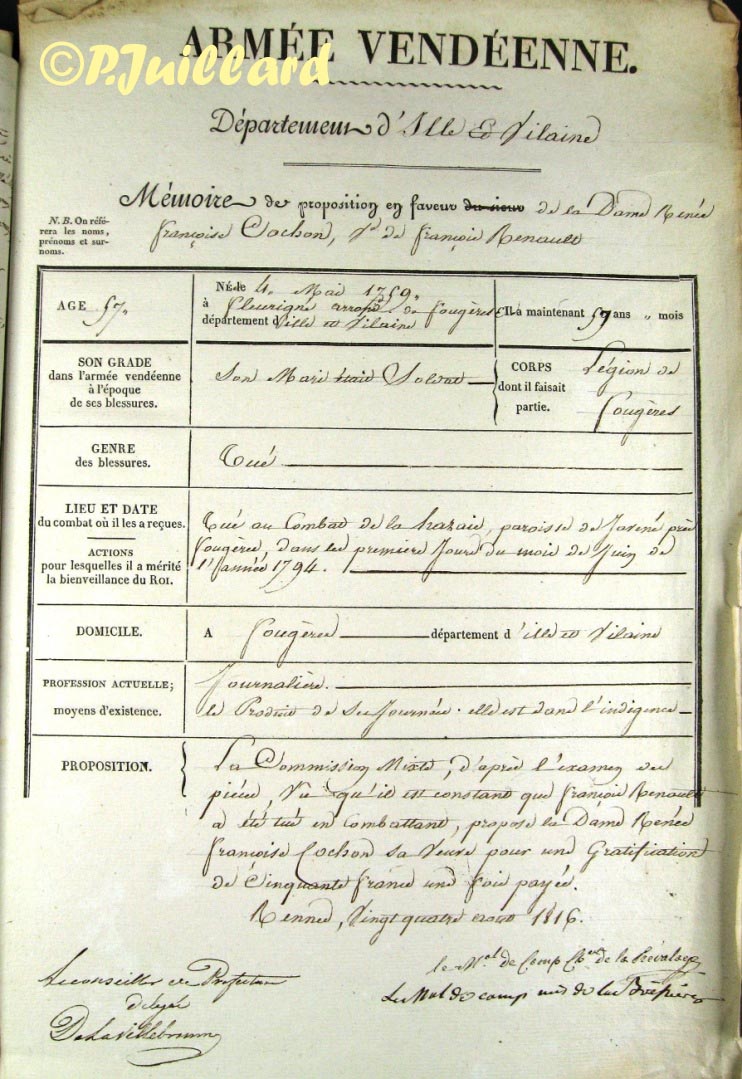 ©P.Juillard
ARMÉE VENDÉENNE.
Département d'Ille Et Vilaine
Mémoire de proposition en faveur du sieur de la Dame Renée
N. B. On réfé-
rera les noms,
prénoms et sur-
noms.
françoise Cochon, Ve de françois Renault
AGE 57"
Né le 4 Mai 1759"
à fleurigné arrond. de fougères
département d'ille et Vilaine
Il a maintenant 59 ans " mois
SON GRADE
dans l'armée vendéenne
à l'époque
de ses blessures.
Son Mari était Soldat
CORPS
dont il faisait
partie.
Légion de
fougères
GENRE
des blessures.
Tué
LIEU ET DATE
du combat où il les a reçues.
ACTIONS
pour lesquelles il a mérité
la bienveillance du Roi.
Tué au Combat de la hazaie, paroisse de Javené près
fougères, dans les premiers Jours du mois de Juin de
l'année 1794.
DOMICILE.
A fougères département d'ille et Vilaine
PROFESSION ACTUELLE;
moyens d'existence.
Journalière.
le Produit de Ses Journées. elle est dans l'indigence
PROPOSITION.
La Commission Mixte, d'après l'examen des
pièces, Vu qu'il est constant que françois Renault
a été tué en Combattant, propose la Dame Renée
françoise Cochon sa Veuve pour une Gratification
de Cinquante francs une fois payée.
Rennes, Vingt quatre aout 1816.
le Mal de Camp Cher de la Prévalaye
Le Mal de camp mis de la Boëssière
Le conseiller de Préfecture
délégué
De la Villebrunne